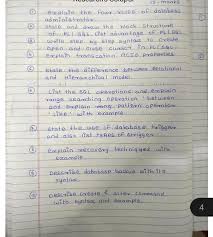 ① Explain the four roles of database
administrator.
② State and draw the block structure
of PL/SQL. List advantage of PL/SQL
③ Write step by step syntax to create,
open and close cursor in PL/SQL.
④ Explain transaction ACID properties
⑤ State the difference between Relational
and Hierarchical model.
⑥ List the SQL operations and explain
range searching operation 'between'
and explain using pattern operator
'like' with example.
State the use of database trigger
and also list types of triggers.
⑧ Explain recovery techniques with
example.
⑨ Describe database backup with its
syntax.
⑩ Describe create & alter command
with syntax and example.
4